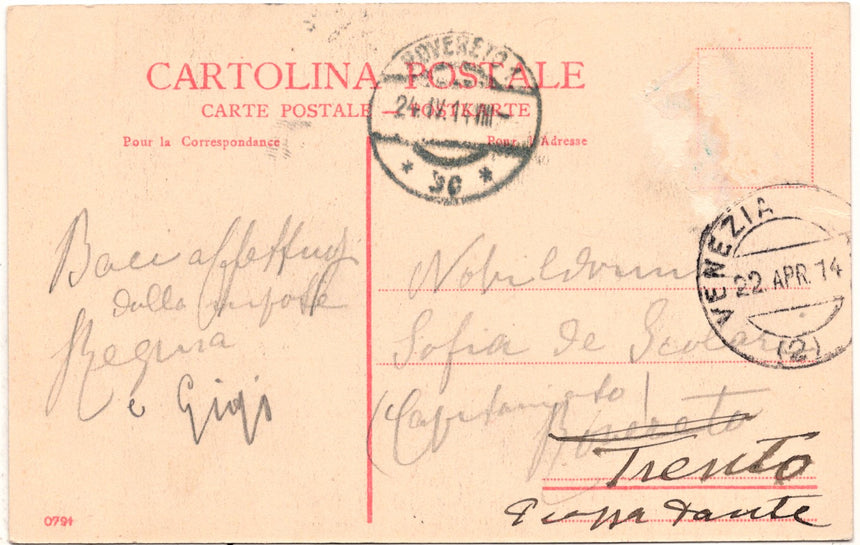 CARTOLINA POSTALE
CARTE POSTALE — POSTKARTE
Pour la Correspondance
Pour l'Adresse
ROVERETO 1
24.IV.14 VIII-
* 3c *
VENEZIA
22 APR. 14
(2)
Baci affettuosi
dalla nipote
Regina
e Gigi
Nobildonna
Sofia de Scolari
(Capitaniato)
Rovereto
Trento
Piazza Dante
0791